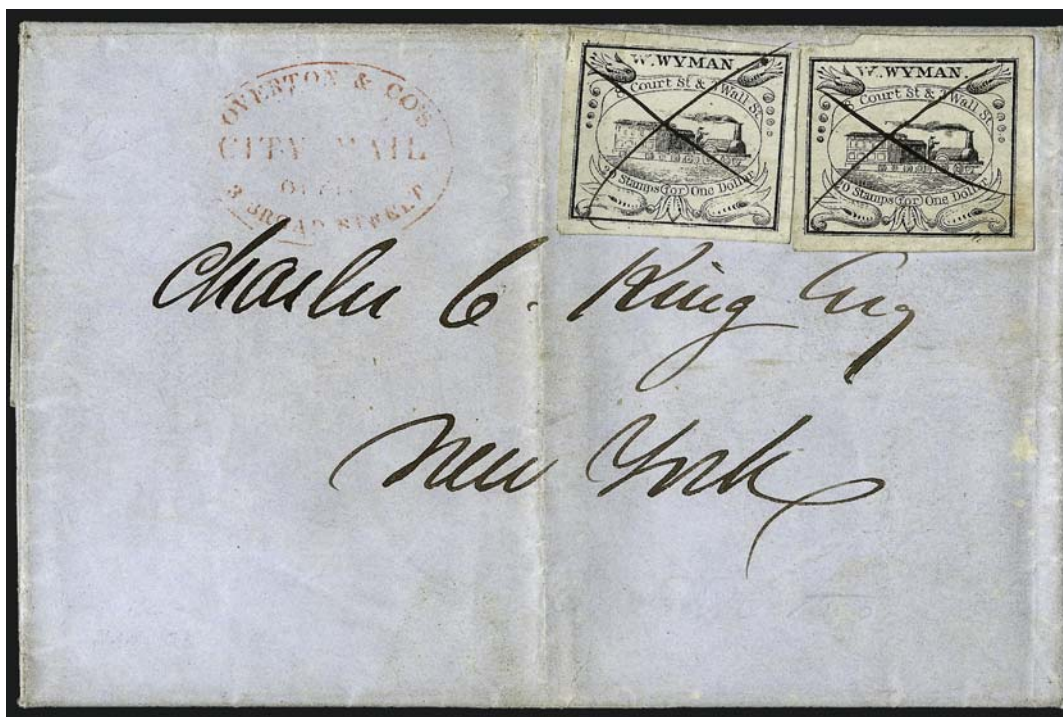 OVERTON & CO'S
CITY MAIL
3 BROAD STREET
W. WYMAN
8 Court St & 3 Wall St
20 Stamps for One Dollar
W. WYMAN.
8 Court St & 3 Wall St
20 Stamps for One Dollar
Charles C. King Esq
New York